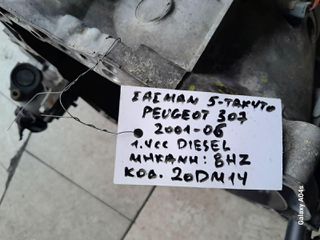 ΣΑΣΜΑΝ 5-ΤΑΧΥΤΟ
PEUGEOT 307
2001-06
1.4cc DIESEL
ΜΗΧΑΝΗ: 8HZ
ΚΩΔ. 20DM14
Galaxy A04s